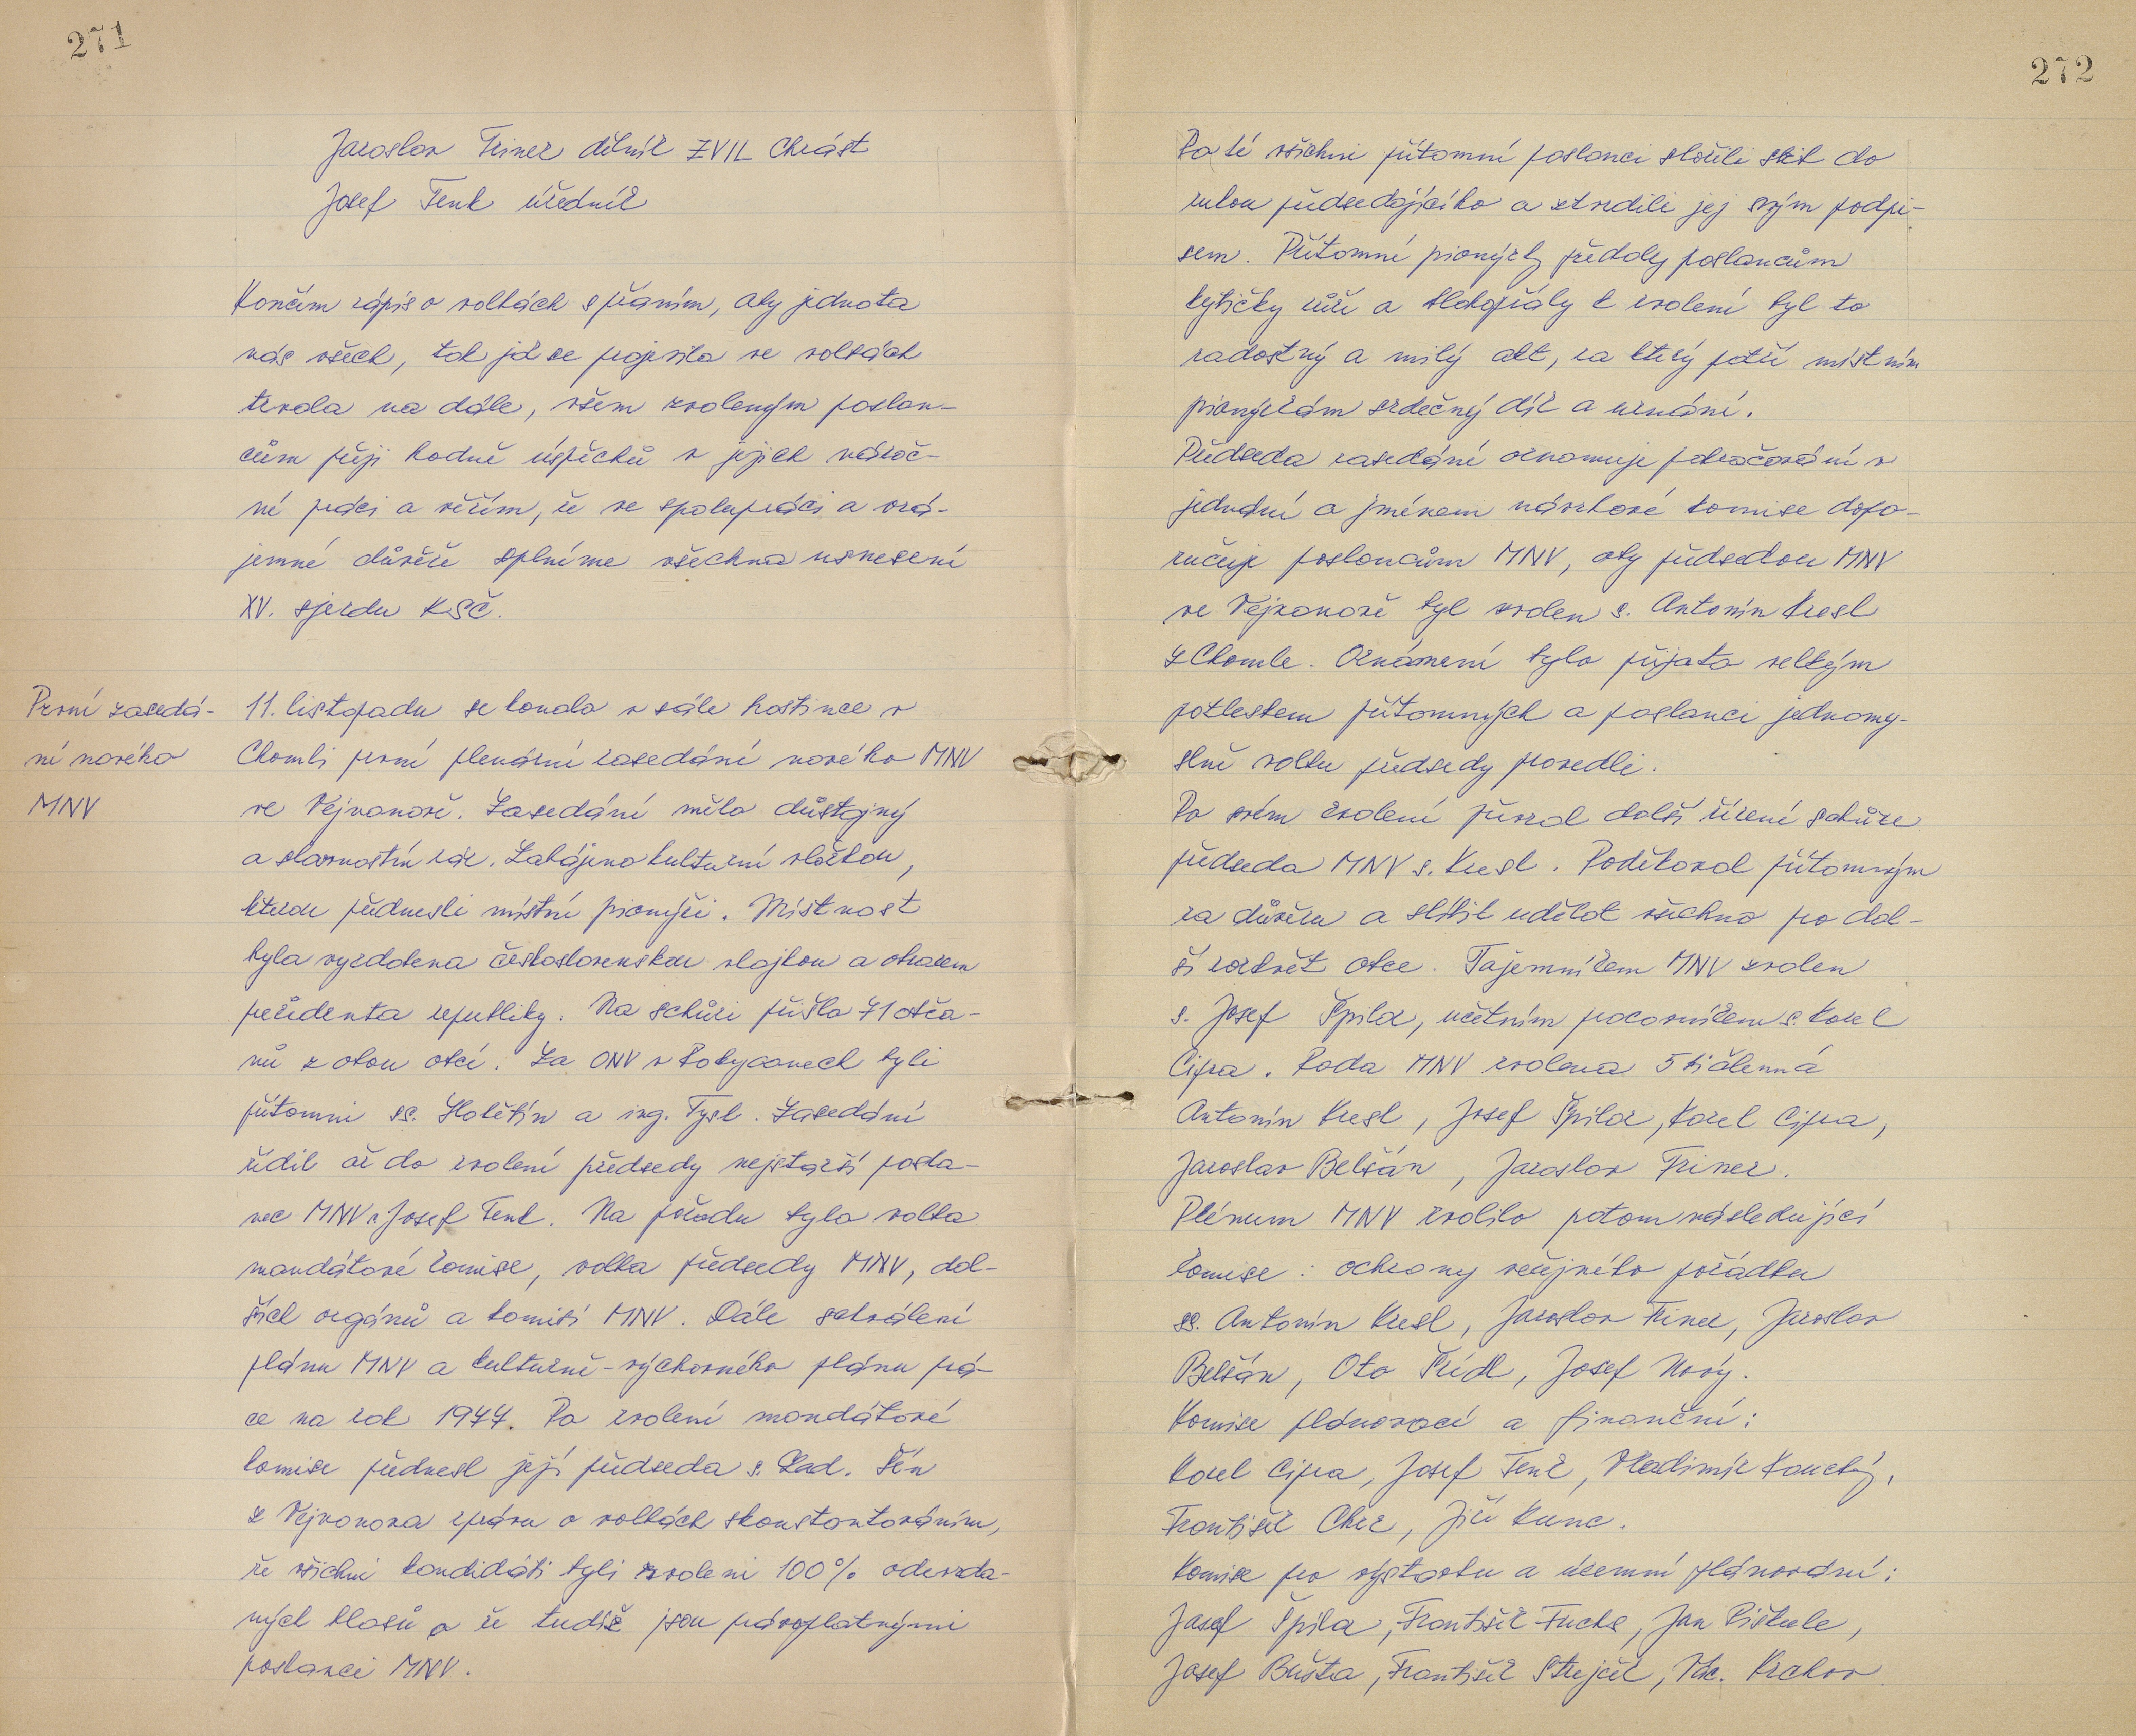 271
Jaroslav Triner dělník ZVIL Chrást
Josef Tenk úředník
Končím zápis o volbách s přáním, aby jednota
nás všech, tak jak se projevila ve volbách
trvala na dále, všem zvoleným poslan-
cům přeji hodně úspěchů v jejich nároč-
né práci a věřím, že ve spolupráci a vzá-
jemné důvěře splníme všechna usnesení
XV. sjezdu KSČ.
První zasedá-
ní nového
MNV
11. listopadu se konalo v sále hostince v
Chomli první plenární zasedání nového MNV
ve Vejvanově. Zasedání mělo důstojný
a slavnostní ráz. Zahájeno kulturní vložkou,
kterou přednesli místní pionýři. Místnost
byla vyzdobena československou vlajkou a obrazem
prezidenta republiky. Na schůzi přišlo 71 obča-
nů z obou obcí. Za ONV v Rokycanech byli
přítomni ss. Holštín a ing. Tysl. Zasedání
řídil až do zvolení předsedy nejstarší posla-
nec MNV s. Josef Tenk. Na pořadu byla volba
mandátové komise, volba předsedy MNV, dal-
ších orgánů a komisí MNV. Dále schválení
plánu MNV a kulturně-výchovného plánu prá-
ce na rok 1977. Po zvolení mandátové
komise přednesl její předseda s. Lad. Šín
z Vejvanova zprávu o volbách s konstantováním,
že všichni kandidáti byli zvoleni 100% odevzda-
ných hlasů a že tudíž jsou právoplatnými
poslanci MNV.
272
Po té všichni přítomní poslanci složili slib do
rukou předsedajícího a stvrdili jej svým podpi-
sem. Přítomní pionýrky předaly poslancům
kytičky růže a blahopřály k zvolení byl to
radostný a milý akt, za který patří místním
pionýrkám srdečný dík a uznání.
Předseda zasedání oznamuje pokračování v
jednání a jménem návrhové komise dopo-
ručuje poslancům MNV, aby předsedou MNV
ve Vejvanově byl zvolen s. Antonín Kresl
z Chomle. Oznámení bylo přijato velkým
potleskem přítomných a poslanci jednomy-
slně volbu předsedy provedli.
Po svém zvolení převzal další řízení schůze
předseda MNV s. Kresl. Poděkoval přítomným
za důvěru a slíbil udělat všechno pro dal-
ší rozkvět obce. Tajemníkem MNV zvolen
s. Josef Špilar, účetním pracovníkem s. Karel
Cipra. Rada MNV zvolena 5 tičlenná
Antonín Kresl, Josef Špilar, Karel Cipra,
Jaroslav Belšán, Jaroslav Triner.
Plénum MNV zvolilo potom následující
komise: ochrany veřejného pořádku
ss. Antonín Kresl, Jaroslav Triner, Jaroslav
Belšán, Oto Frídl, Josef Nový.
Komise plánovací a finanční:
Karel Cipra, Josef Tenk, Vladimír Koucký,
František Cházr, Jiří Kunc.
Komise pro výstavbu a územní plánování:
Josef Špilar, František Fuchs, Jan Piškule,
Josef Bušta, František Strejček, Vác. Krchov